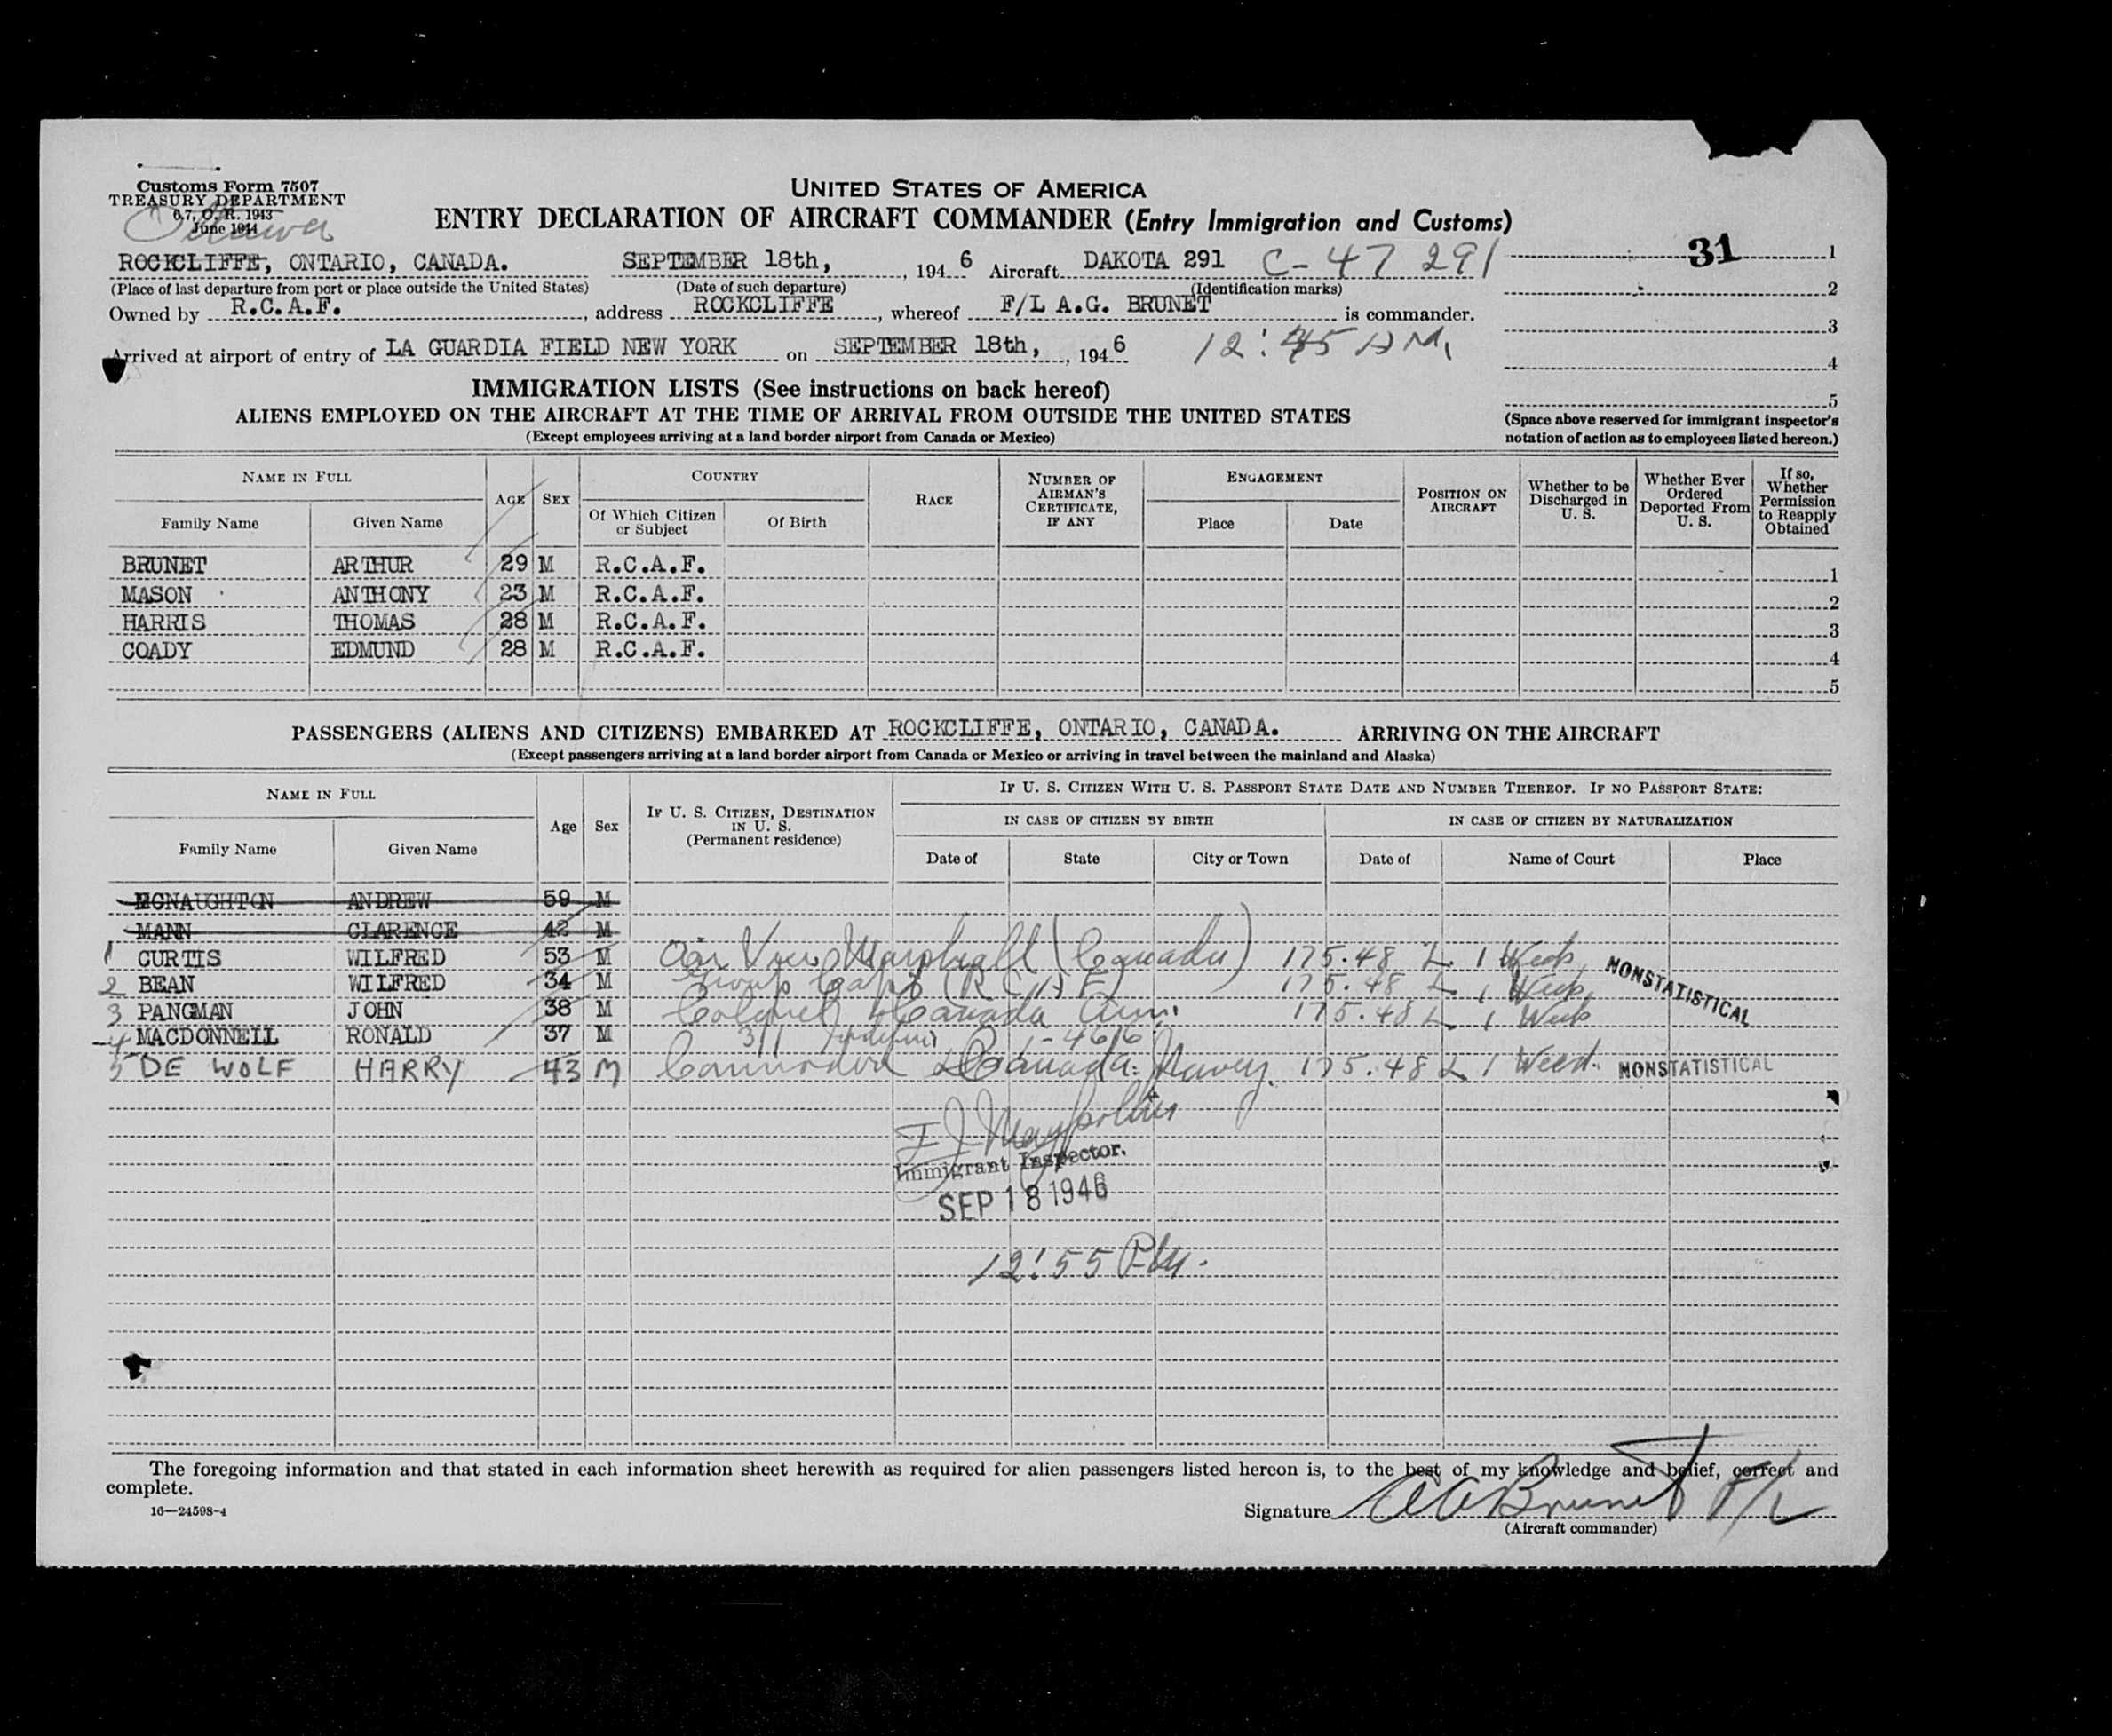 Customs Form 7507
TREASURY DEPARTMENT
6.7, C. R. 1943
June 1944
Ottawa
UNITED STATES OF AMERICA
ENTRY DECLARATION OF AIRCRAFT COMMANDER (Entry Immigration and Customs)
ROCKCLIFFE, ONTARIO, CANADA. SEPTEMBER 18th, , 194 6 Aircraft DAKOTA 291 C-47 291 31 1
(Place of last departure from port or place outside the United States) (Date of such departure) (Identification marks) 2
Owned by R.C.A.F. , address ROCKCLIFFE , whereof F/L A.G. BRUNET is commander. 3
Arrived at airport of entry of LA GUARDIA FIELD NEW YORK on SEPTEMBER 18th, , 194 6 12:45 M. 4
5
IMMIGRATION LISTS (See instructions on back hereof)
ALIENS EMPLOYED ON THE AIRCRAFT AT THE TIME OF ARRIVAL FROM OUTSIDE THE UNITED STATES
(Except employees arriving at a land border airport from Canada or Mexico)
(Space above reserved for immigrant inspector's
notation of action as to employees listed hereon.)
NAME IN FULL AGE SEX COUNTRY RACE NUMBER OF AIRMAN'S CERTIFICATE, IF ANY ENGAGEMENT POSITION ON AIRCRAFT Whether to be Discharged in U. S. Whether Ever Ordered Deported From U. S. If so, Whether Permission to Reapply Obtained
Family Name Given Name Of Which Citizen or Subject Of Birth Place Date
BRUNET ARTHUR 29 M R.C.A.F. 1
MASON ANTHONY 23 M R.C.A.F. 2
HARRIS THOMAS 28 M R.C.A.F. 3
COADY EDMUND 28 M R.C.A.F. 4
5
PASSENGERS (ALIENS AND CITIZENS) EMBARKED AT ROCKCLIFFE, ONTARIO, CANADA. ARRIVING ON THE AIRCRAFT
(Except passengers arriving at a land border airport from Canada or Mexico or arriving in travel between the mainland and Alaska)
NAME IN FULL Age Sex IF U. S. CITIZEN, DESTINATION IN U. S. (Permanent residence) IF U. S. CITIZEN WITH U. S. PASSPORT STATE DATE AND NUMBER THEREOF. IF NO PASSPORT STATE:
IN CASE OF CITIZEN BY BIRTH IN CASE OF CITIZEN BY NATURALIZATION
Family Name Given Name Date of State City or Town Date of Name of Court Place
MCNAUGHTON ANDREW 59 M
MANN CLARENCE 42 M
1 CURTIS WILFRED 53 M Air Vice Marshall (Canada) 175.48 L 1 Week NONSTATISTICAL
2 BEAN WILFRED 34 M Group Capt (RCAF) 175.48 L 1 Week
3 PANGMAN JOHN 38 M Colonel Canada Army 175.48 L 1 Week
4 MACDONNELL RONALD 37 M 3/1
5 DE WOLF HARRY 43 M Commodore Canada Navy. 175.48 L 1 Week. NONSTATISTICAL
Immigrant Inspector.
SEP 18 1946
12:55 PM.
The foregoing information and that stated in each information sheet herewith as required for alien passengers listed hereon is, to the best of my knowledge and belief, correct and
complete.
16—24598-4
Signature AG Brunet F/L
(Aircraft commander)